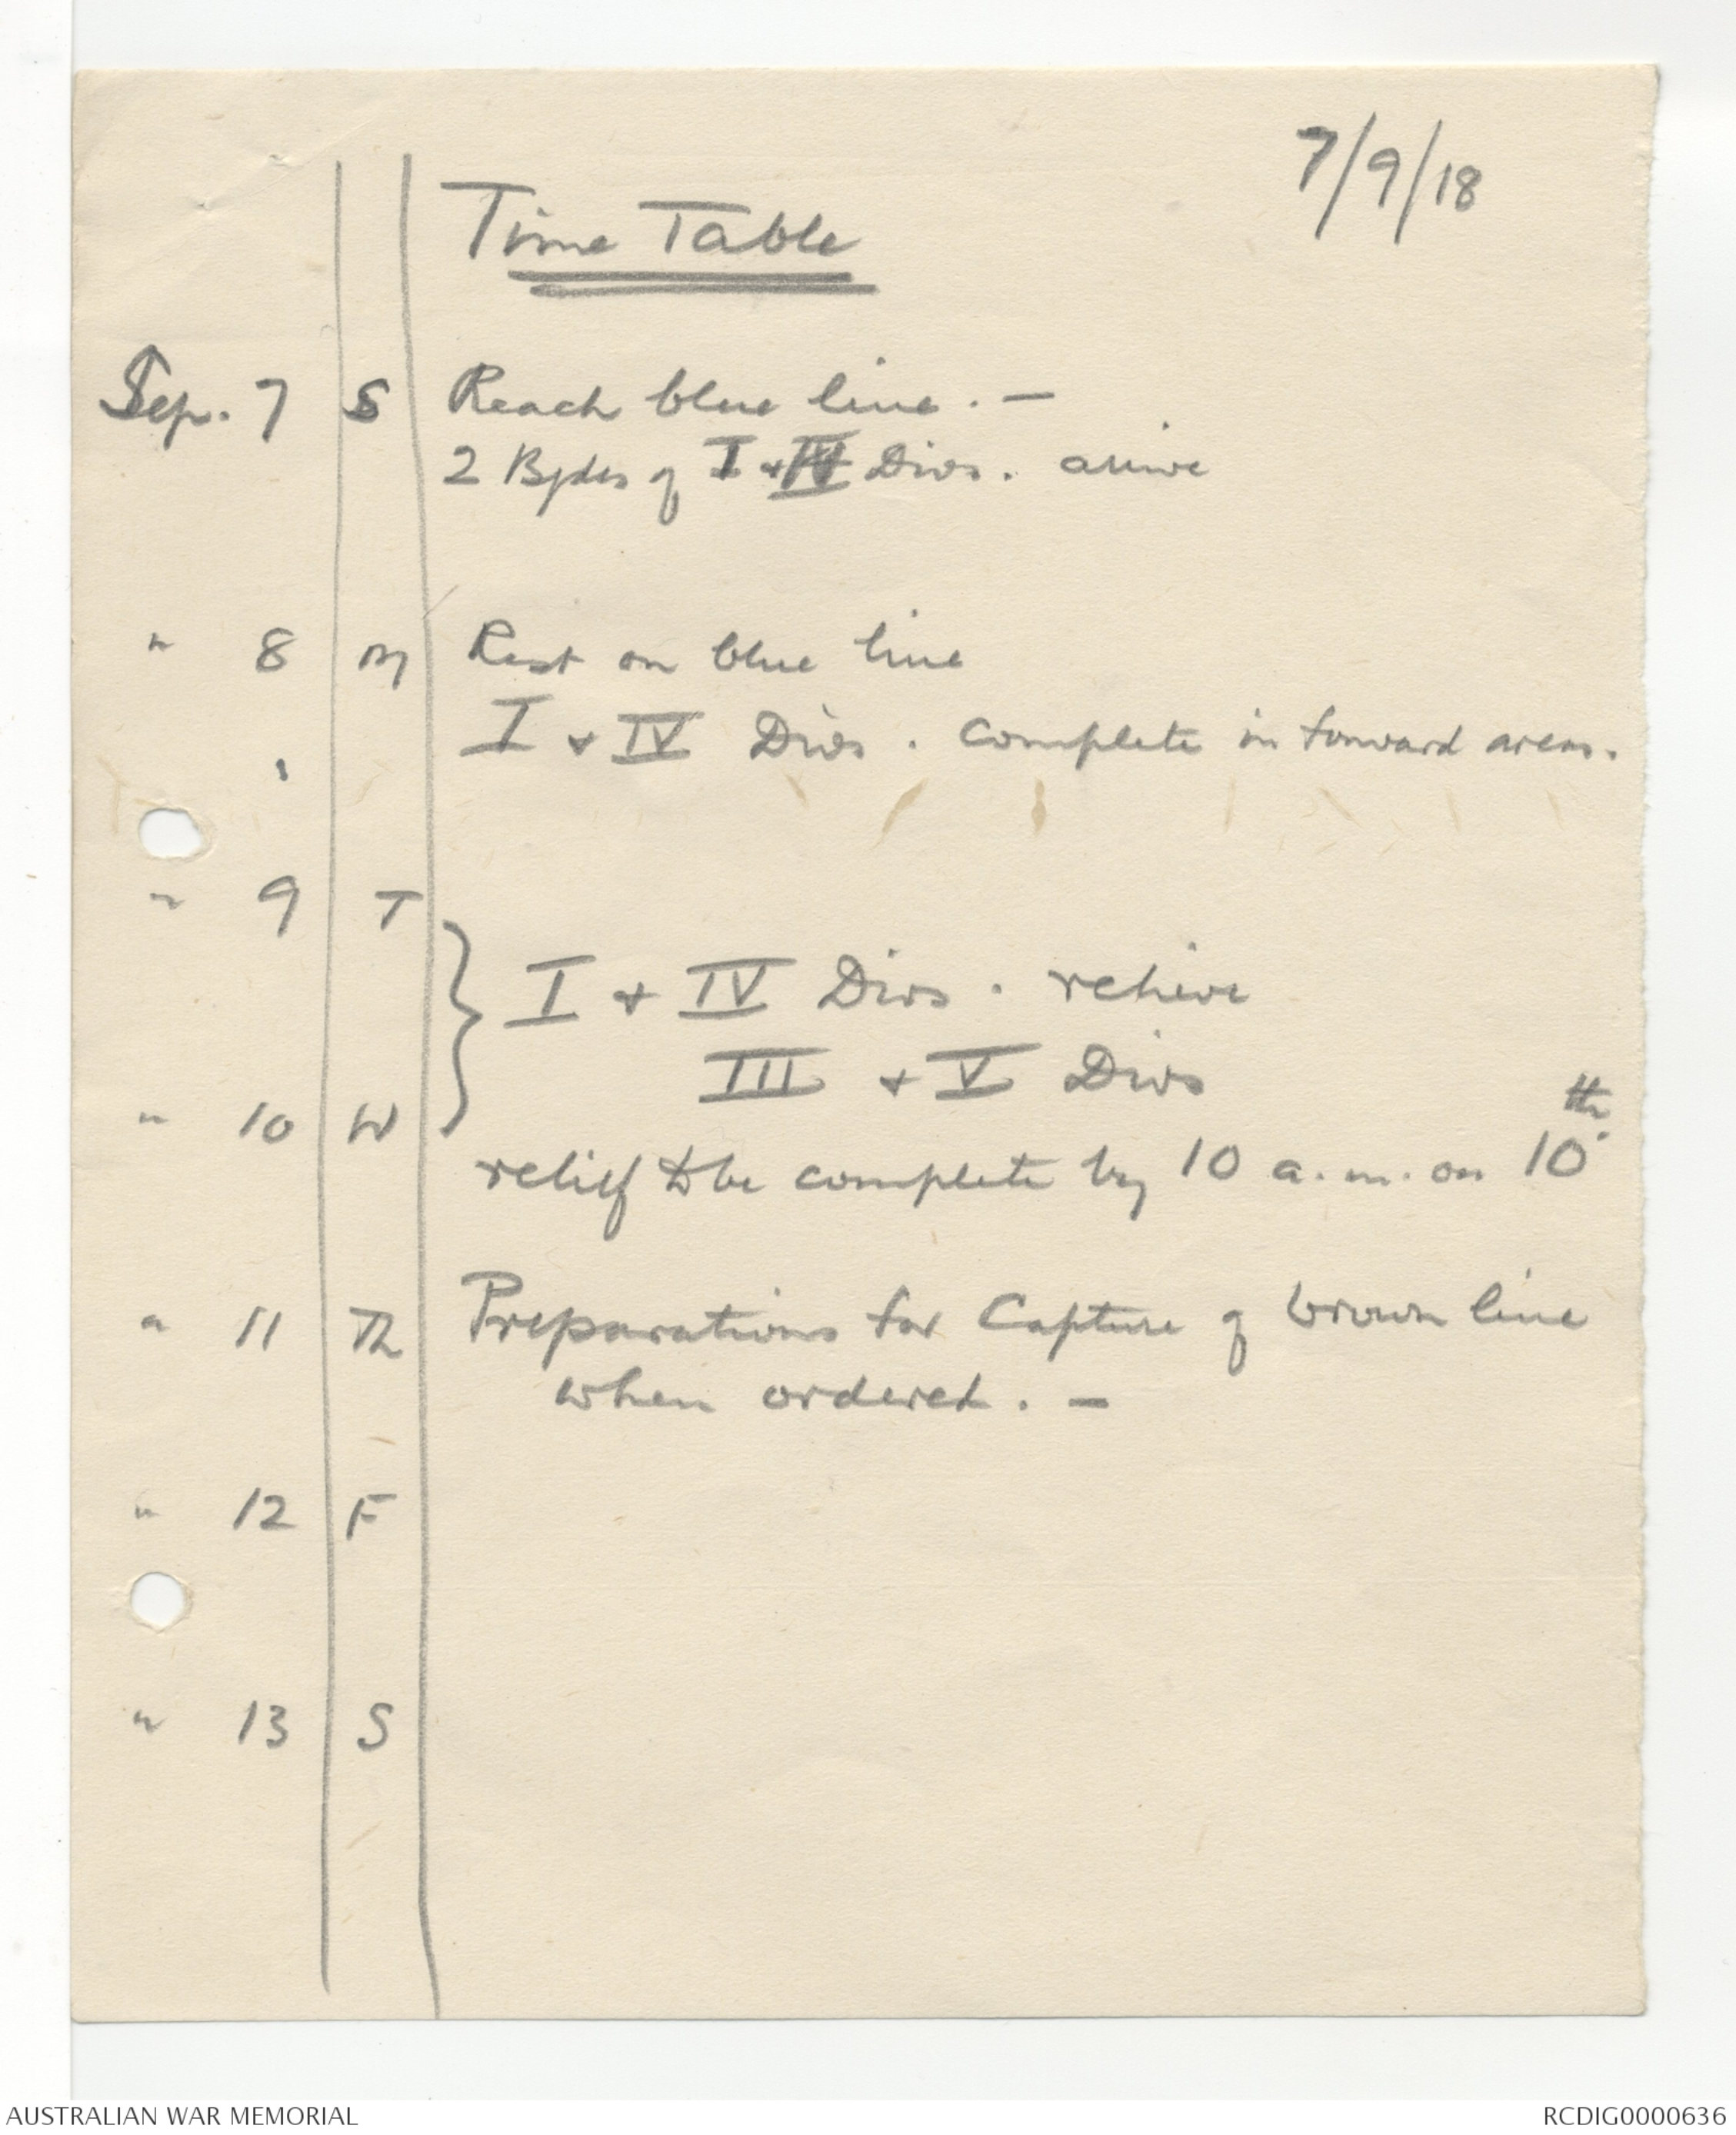 7/9/18
Time Table
Sep. 7 S Reach blue line. —
2 Bgdes of I & IV Divs. arrive
" 8 M Rest on blue line
I & IV Divs. complete in forward areas.
" 9 T
} I & IV Divs. relieve
III & V Divs
" 10 W
relief to be complete by 10 a.m. on 10th.
" 11 Th Preparations for Capture of brown line
when ordered. —
" 12 F
" 13 S
AUSTRALIAN WAR MEMORIAL
RCDIG0000636